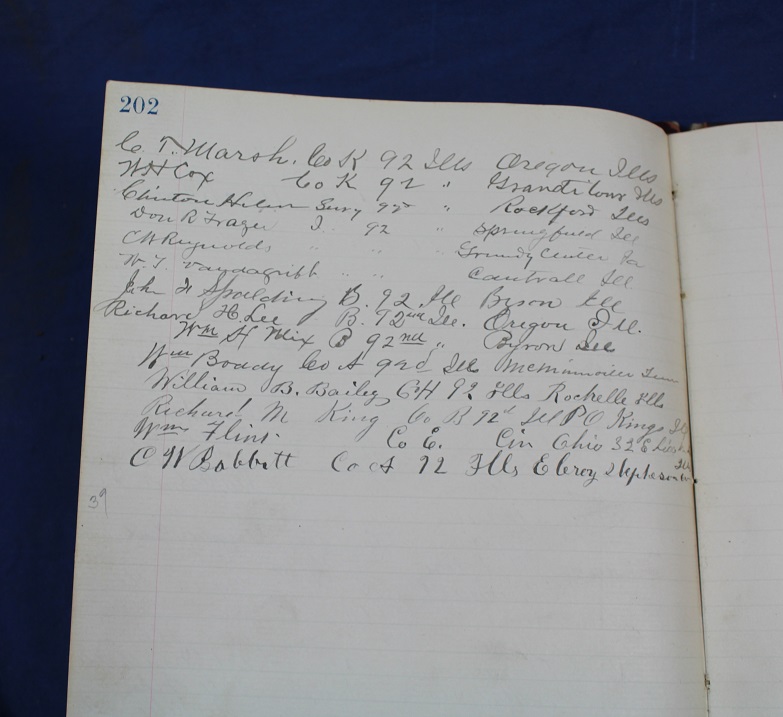 202
C. T. Marsh. Co K 92 Ills Oregon Ills
W H Cox Co K 92 " Ills
Clinton Helm Surg 92 " Rockford Ills
Don R Frazer I 92 " Springfield Ill
C H Reynolds " " " Grundy Center Ia
W. T. Vandagrifft " " Cantrall Ill
John F Spalding B. 92. Ill Byron Ill
Richard H. Lee B. 92nd Ill. Oregon Ill.
Wm H Mix B 92nd " Byron Ill
Wm Boddy Co A 92d Ill McMinnville Tenn
William B. Bailey Co H 92 Ills Rochelle Ills
Richard M King Co B 92d Ill P O Kings Ill
Wm Flint Co E. Cin Ohio 32 E
C W Babbitt Co A 92 Ills Eleroy Stephenson Co Ill
39